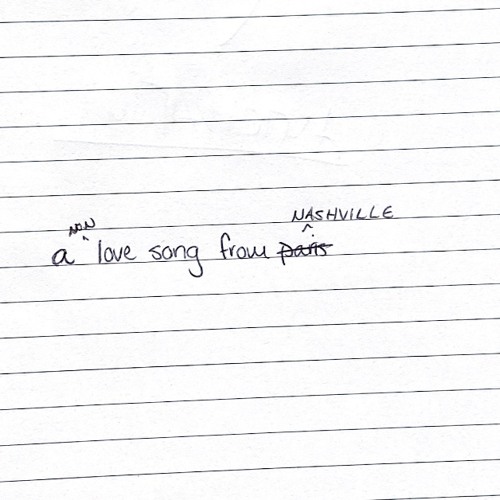 NON
NASHVILLE
a love song from paris